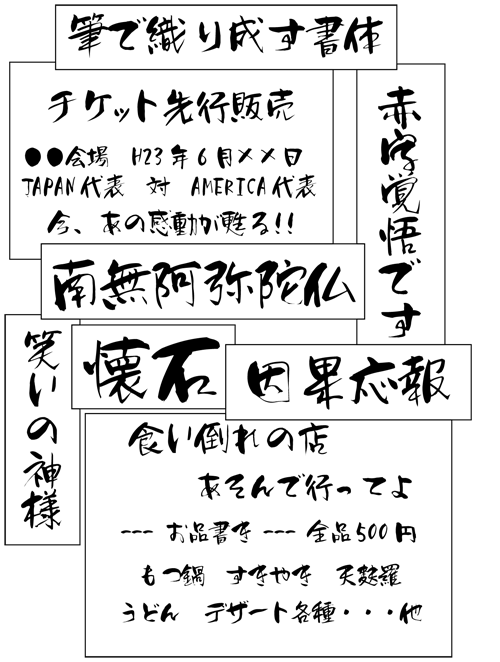 筆で織り成す書体
チケット先行販売
●●会場　H23年6月××日
JAPAN代表　対　AMERICA代表
今、あの感動が甦る!!
赤字覚悟です
南無阿弥陀仏
笑いの神様
懐石
因果応報
食い倒れの店
あそんで行ってよ
--- お品書き --- 全品500円
もつ鍋　すきやき　天麩羅
うどん　デザート各種・・・他